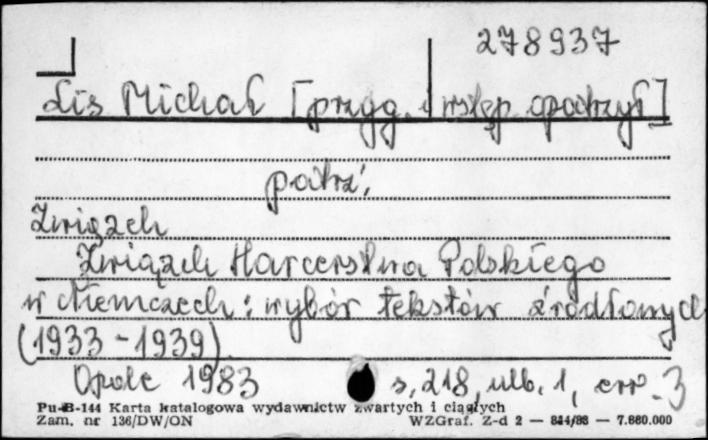 278937
Lis Michał [przyg. i wstęp opatrzył]
patrz:
Związek
Związek Harcerstwa Polskiego
w Niemczech: wybór tekstów źródłowych
(1933-1939)
Opole 1983 s. 218, ulb. 1, err. 3
Pu-B-144 Karta katalogowa wydawnictw zwartych i ciągłych
Zam. nr 136/DW/ON WZGraf. Z-d 2 — 844/83 — 7.660.000